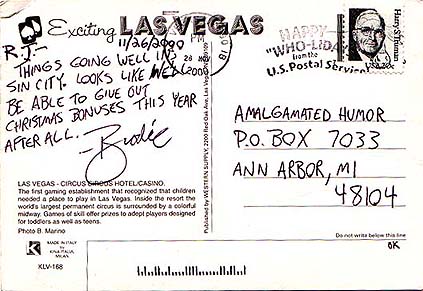 Exciting LAS VEGAS
11/26/2000
R.J.-
THINGS GOING WELL IN
SIN CITY. LOOKS LIKE WE'LL
BE ABLE TO GIVE OUT
CHRISTMAS BONUSES THIS YEAR
AFTER ALL.
PM
28 NOV
2000
HAPPY
"WHO-LIDAY
from the
U.S. Postal Service
Harry S. Truman
USA 20c
AMALGAMATED HUMOR
P.O. BOX 7033
ANN ARBOR, MI
48104
LAS VEGAS - CIRCUS CIRCUS HOTEL/CASINO.
The first gaming establishment that recognized that children
needed a place to play in Las Vegas. Inside the resort the
world's largest permanent circus is surrounded by a colorful
midway. Games of skill offer prizes to adept players designed
for toddlers as well as teens.
Photo B. Marino
Published by WESTERN SUPPLY, 2200 Red Oak, Las Vegas
K
MADE IN ITALY
by
KINA ITALIA,
MILAN
KLV-168
Do not write below this line
OK